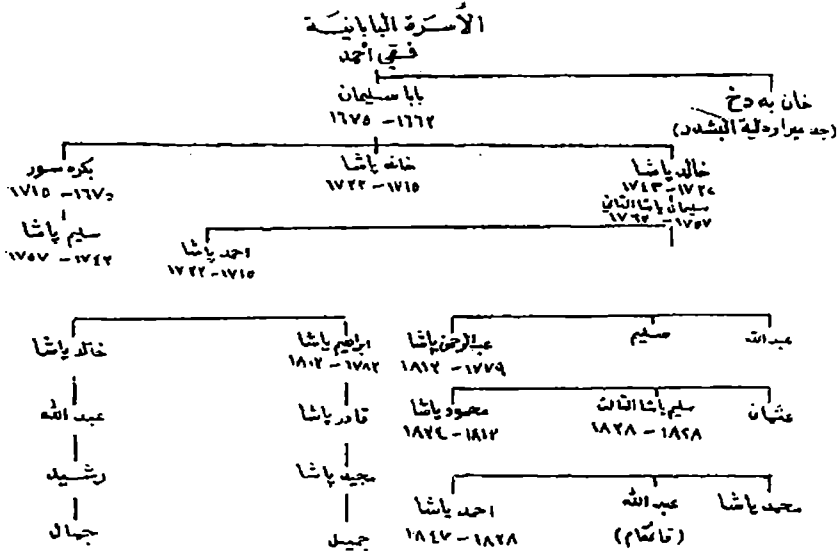 الأسرة البابانية
فقي احمد
خان به دخ
(جد ميراودلية البشدر)
بابا سليمان
١٦٦٢-١٦٧٥
خالد پاشا
١٧٤٣-١٧٣٢
سليمان پاشا الثاني
خانه پاشا
١٧١٥-١٧٢٢
بكره سور
١٦٧٥-١٧١٥
سليم پاشا
١٧٤٢-١٧٥٧
احمد پاشا
١٧١٥-١٧٢٢
عبدالله
سليم
عبدالرحمن پاشا
١٧٧٩-١٨١٢
ابراهيم پاشا
١٧٨٢-١٨٠٢
خالد پاشا
عثمان
سليم پاشا الثالث
١٨٢٨-١٨٢٨
محمود پاشا
١٨١٢-١٨٢٤
قادر پاشا
عبدالله
مجيد پاشا
رشيد
محمد پاشا
عبدالله
(قائمقام)
احمد پاشا
١٨٢٨-١٨٤٧
جميل
جمال